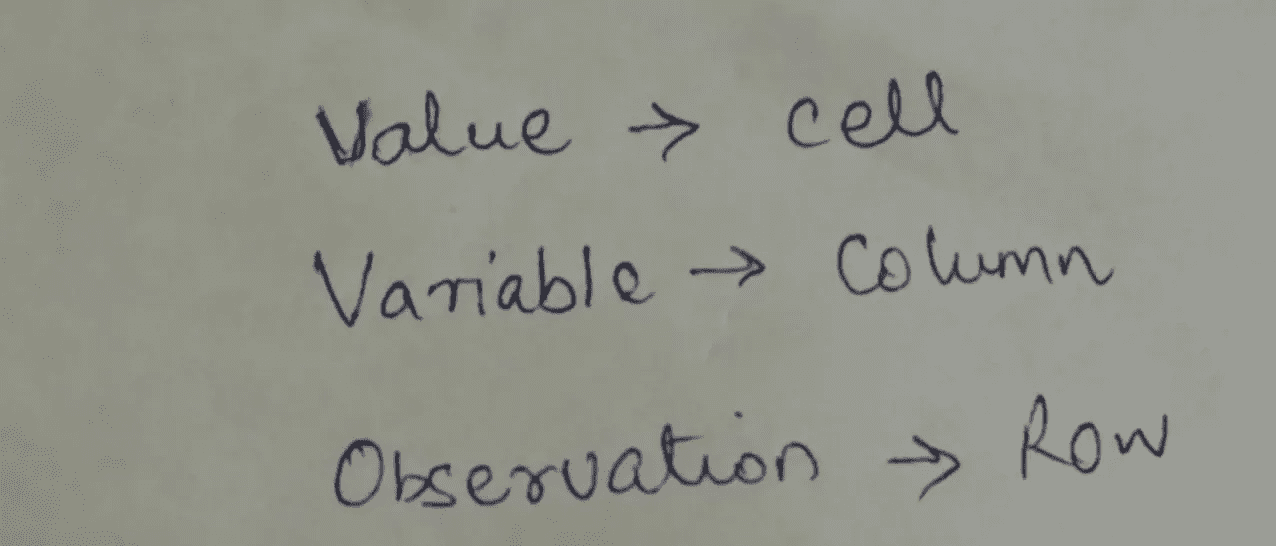 Value → cell
Variable → Column
Observation → Row